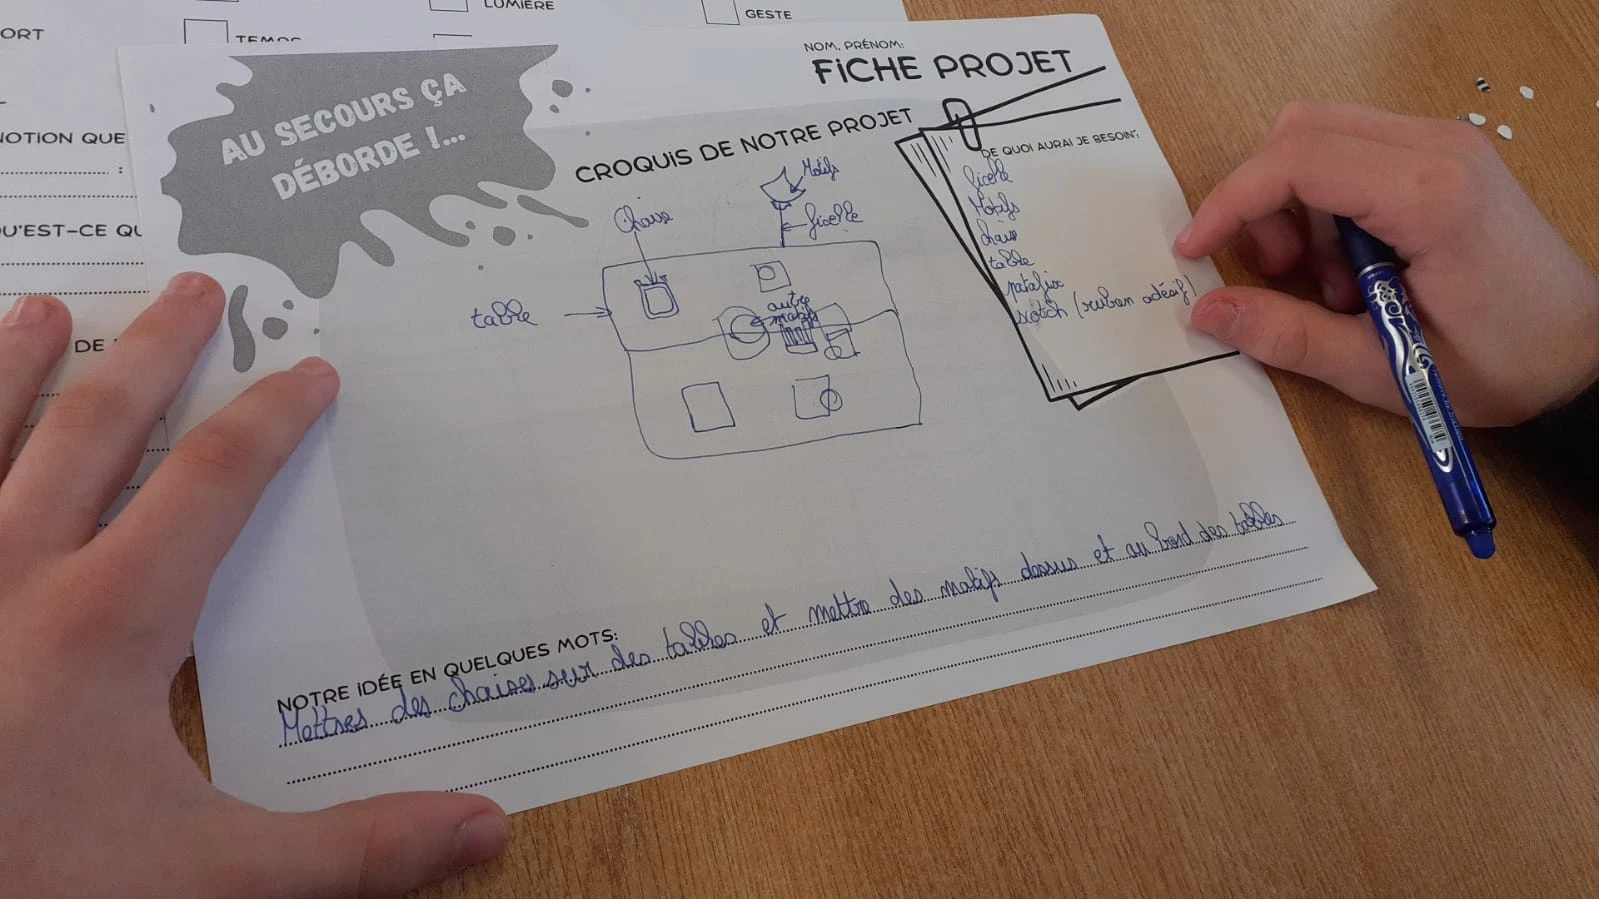 ORT
LUMIÈRE
GESTE
NOTION QUE
:
U'EST-CE QU
DE
AU SECOURS ÇA
DÉBORDE !...
NOM, PRÉNOM:
FICHE PROJET
CROQUIS DE NOTRE PROJET
Motifs
ficelle
Chaise
table
autre
motifs
DE QUOI AURAI JE BESOIN:
ficelle
Motifs
chaise
table
patafix
scotch (ruban adésif)
NOTRE IDÉE EN QUELQUES MOTS:
Mettres des chaises sur des tables et mettre des motifs dessus et au bord des tables